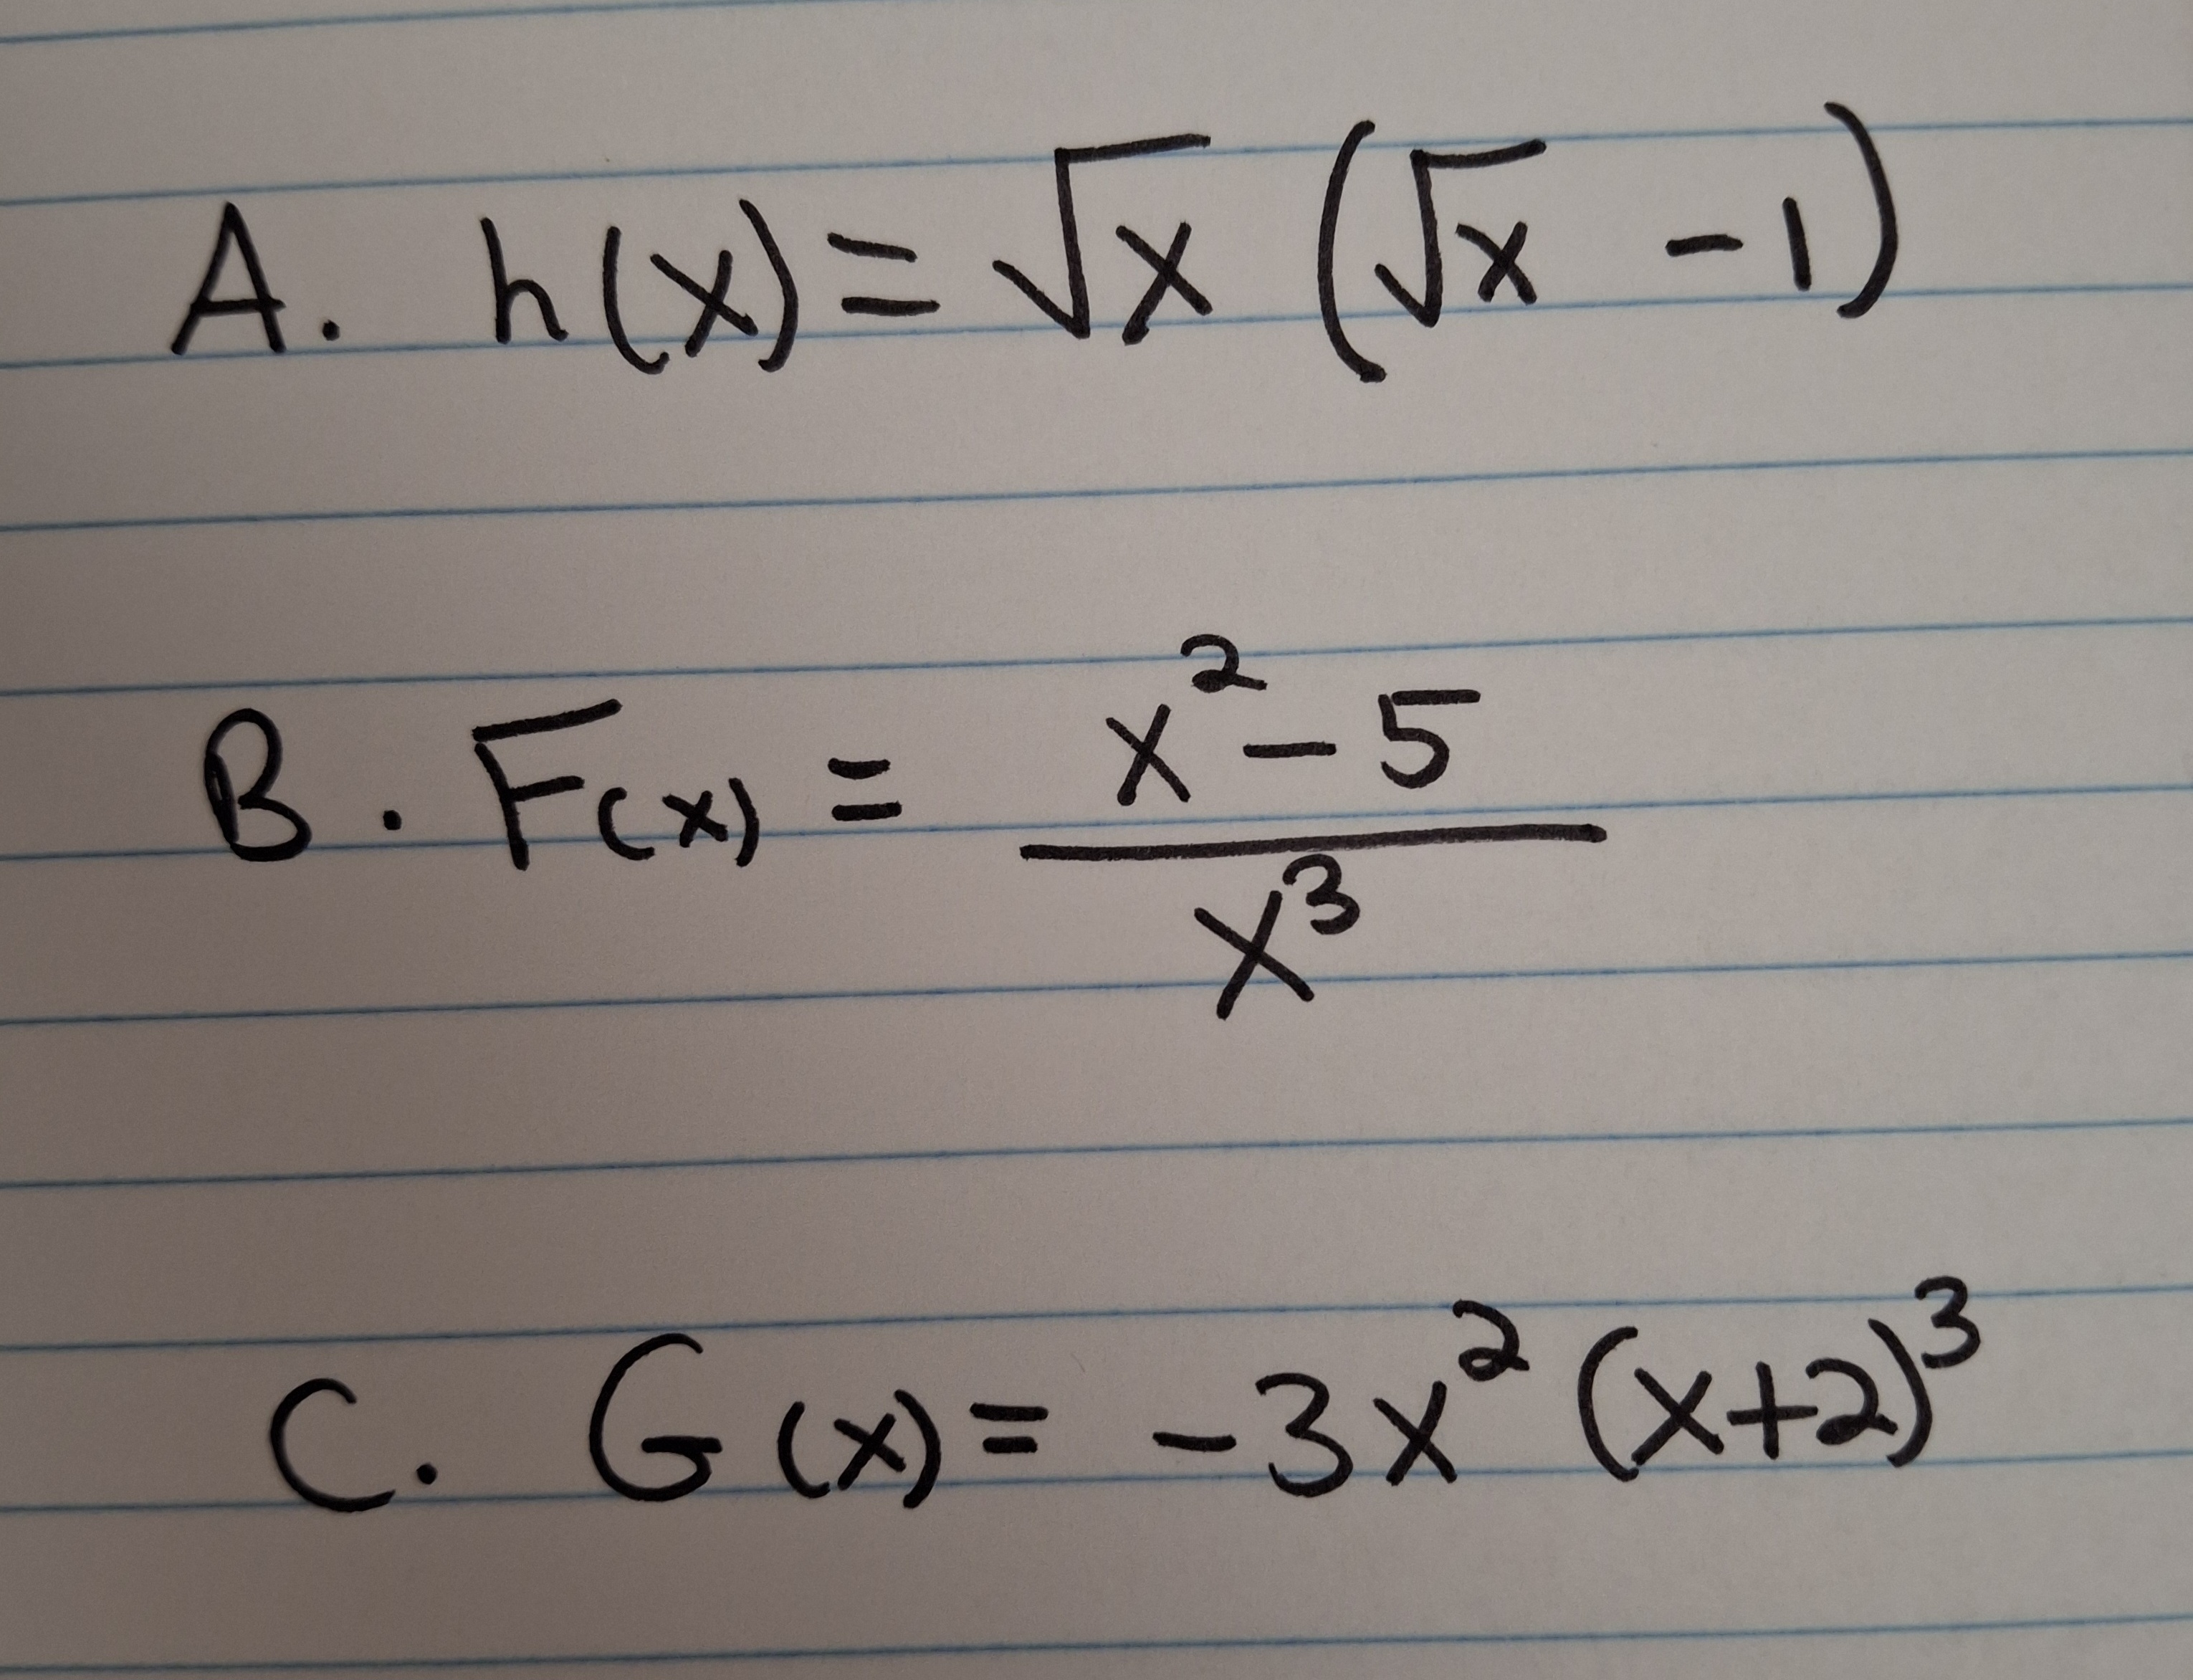 A. h(x) = √x (√x - 1)
B. F(x) = x² - 5 / x³
C. G(x) = -3x² (x+2)³